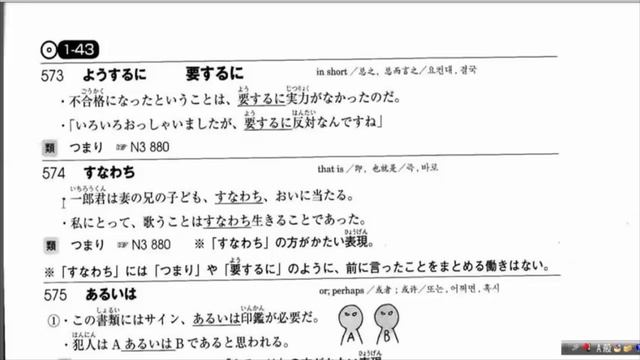 1-43
573 ようするに 要するに in short／总之, 总而言之／요컨대, 결국
・不合格になったということは、要するに実力がなかったのだ。
・「いろいろおっしゃいましたが、要するに反対なんですね」
類 つまり ☞ N3 880
574 すなわち that is／即, 也就是／즉, 바로
・一郎君は妻の兄の子ども、すなわち、おいに当たる。
・私にとって、歌うことはすなわち生きることであった。
類 つまり ☞ N3 880 ※「すなわち」の方がかたい表現。
※「すなわち」には「つまり」や「要するに」のように、前に言ったことをまとめる働きはない。
575 あるいは or; perhaps／或者；或许／또는, 어쩌면, 혹시
①・この書類にはサイン、あるいは印鑑が必要だ。
・犯人はAあるいはBであると思われる。
A B